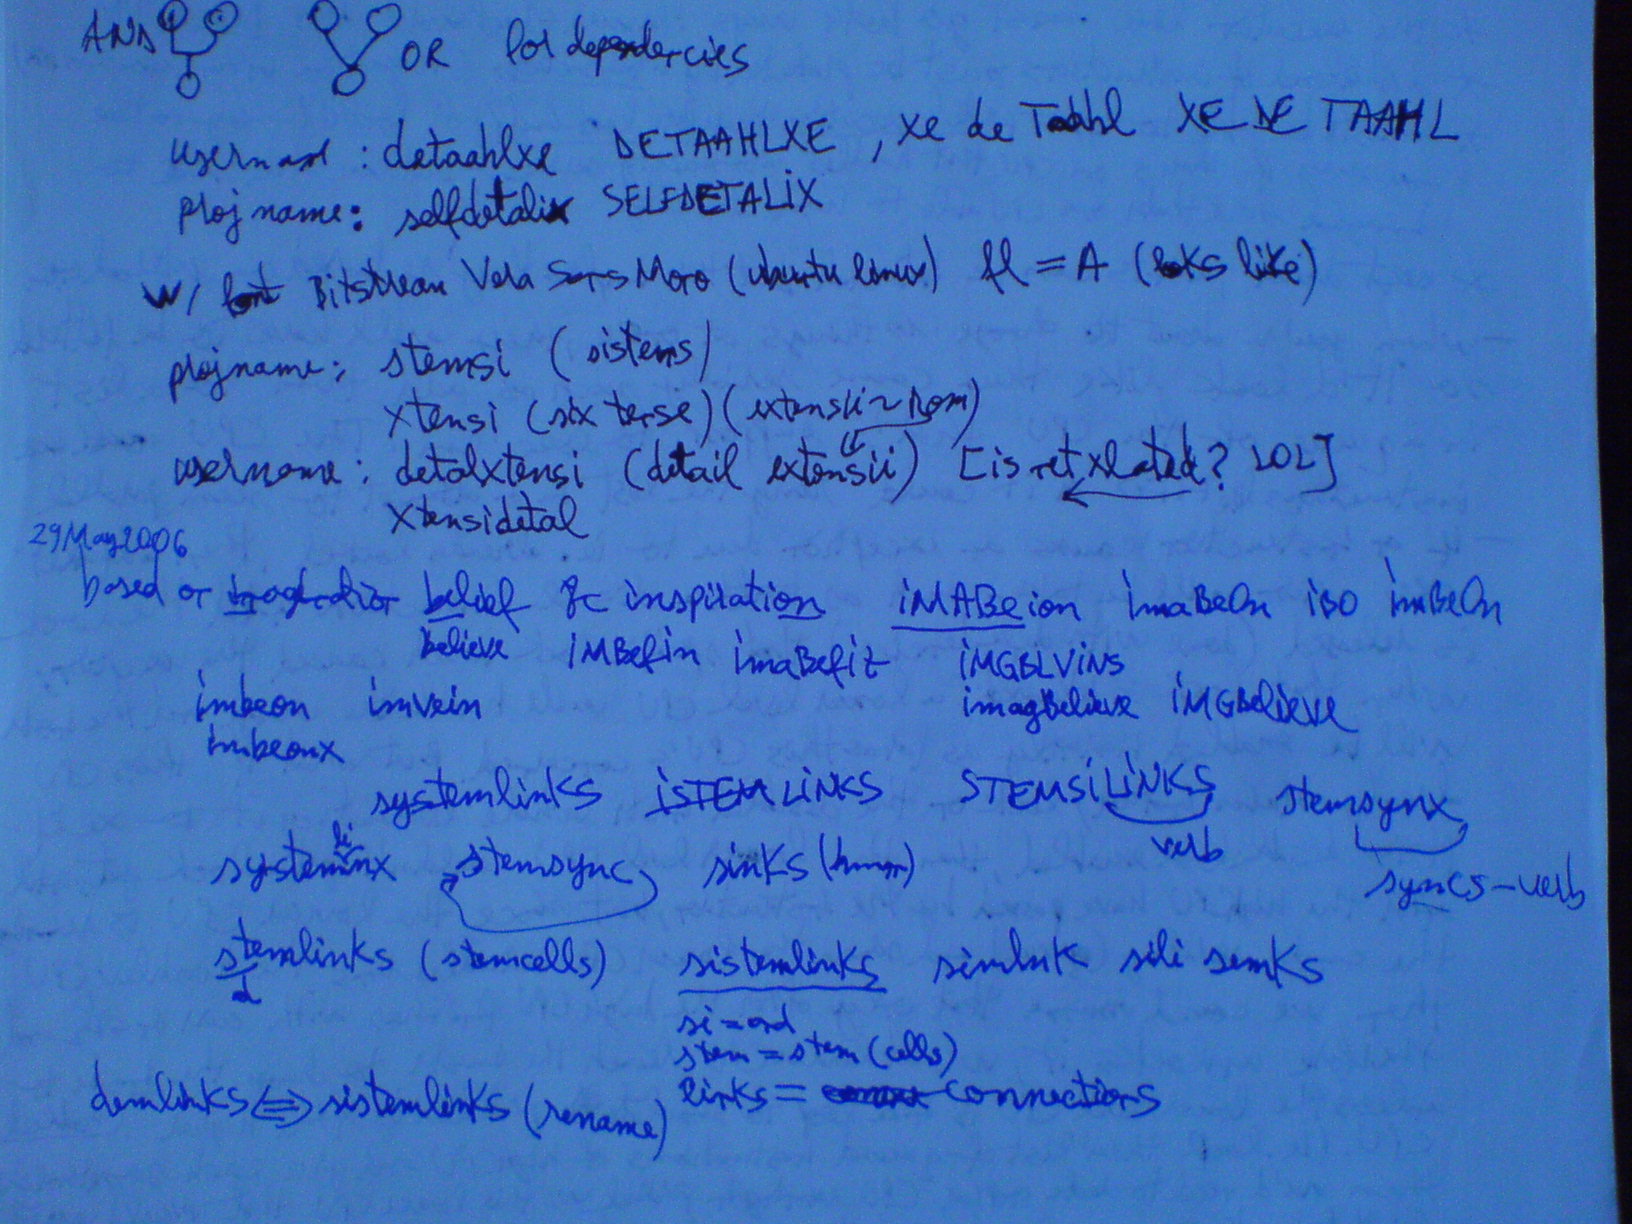 AND OR for dependencies
username : detaahlxe DETAAHLXE , xe de Taahl XE DE TAAHL
projname: selfdetalix SELFDETALiX
w/ font Bitstream Vera Sans Mono (ubuntu linux) fl = A (looks like)
projname: stemsi (sistems)
xtensi (six tense) (extensii ~ Rom)
username : detalxtensi (detail extensii) [is ret xlated? LOL]
xtensidetal
29May2006
based on belief & inspiration iMABeion imaBeOn iBO imBeOn
believe iMBefin imaBefit iMGBLViNS
imbeon imvein imagBelieve iMGBelieve
imbeonx
systemlinks iSTEMLiNKS STEMSiLiNKS stemsynx
verb
li
systeminx stemsync sinks (hmm) syncs-verb
stemlinks (stemcells) sistemlinks simlnk sili semks
d
si = and
stem = stem (cells)
links = connections
demlinks <=> sistemlinks (rename)